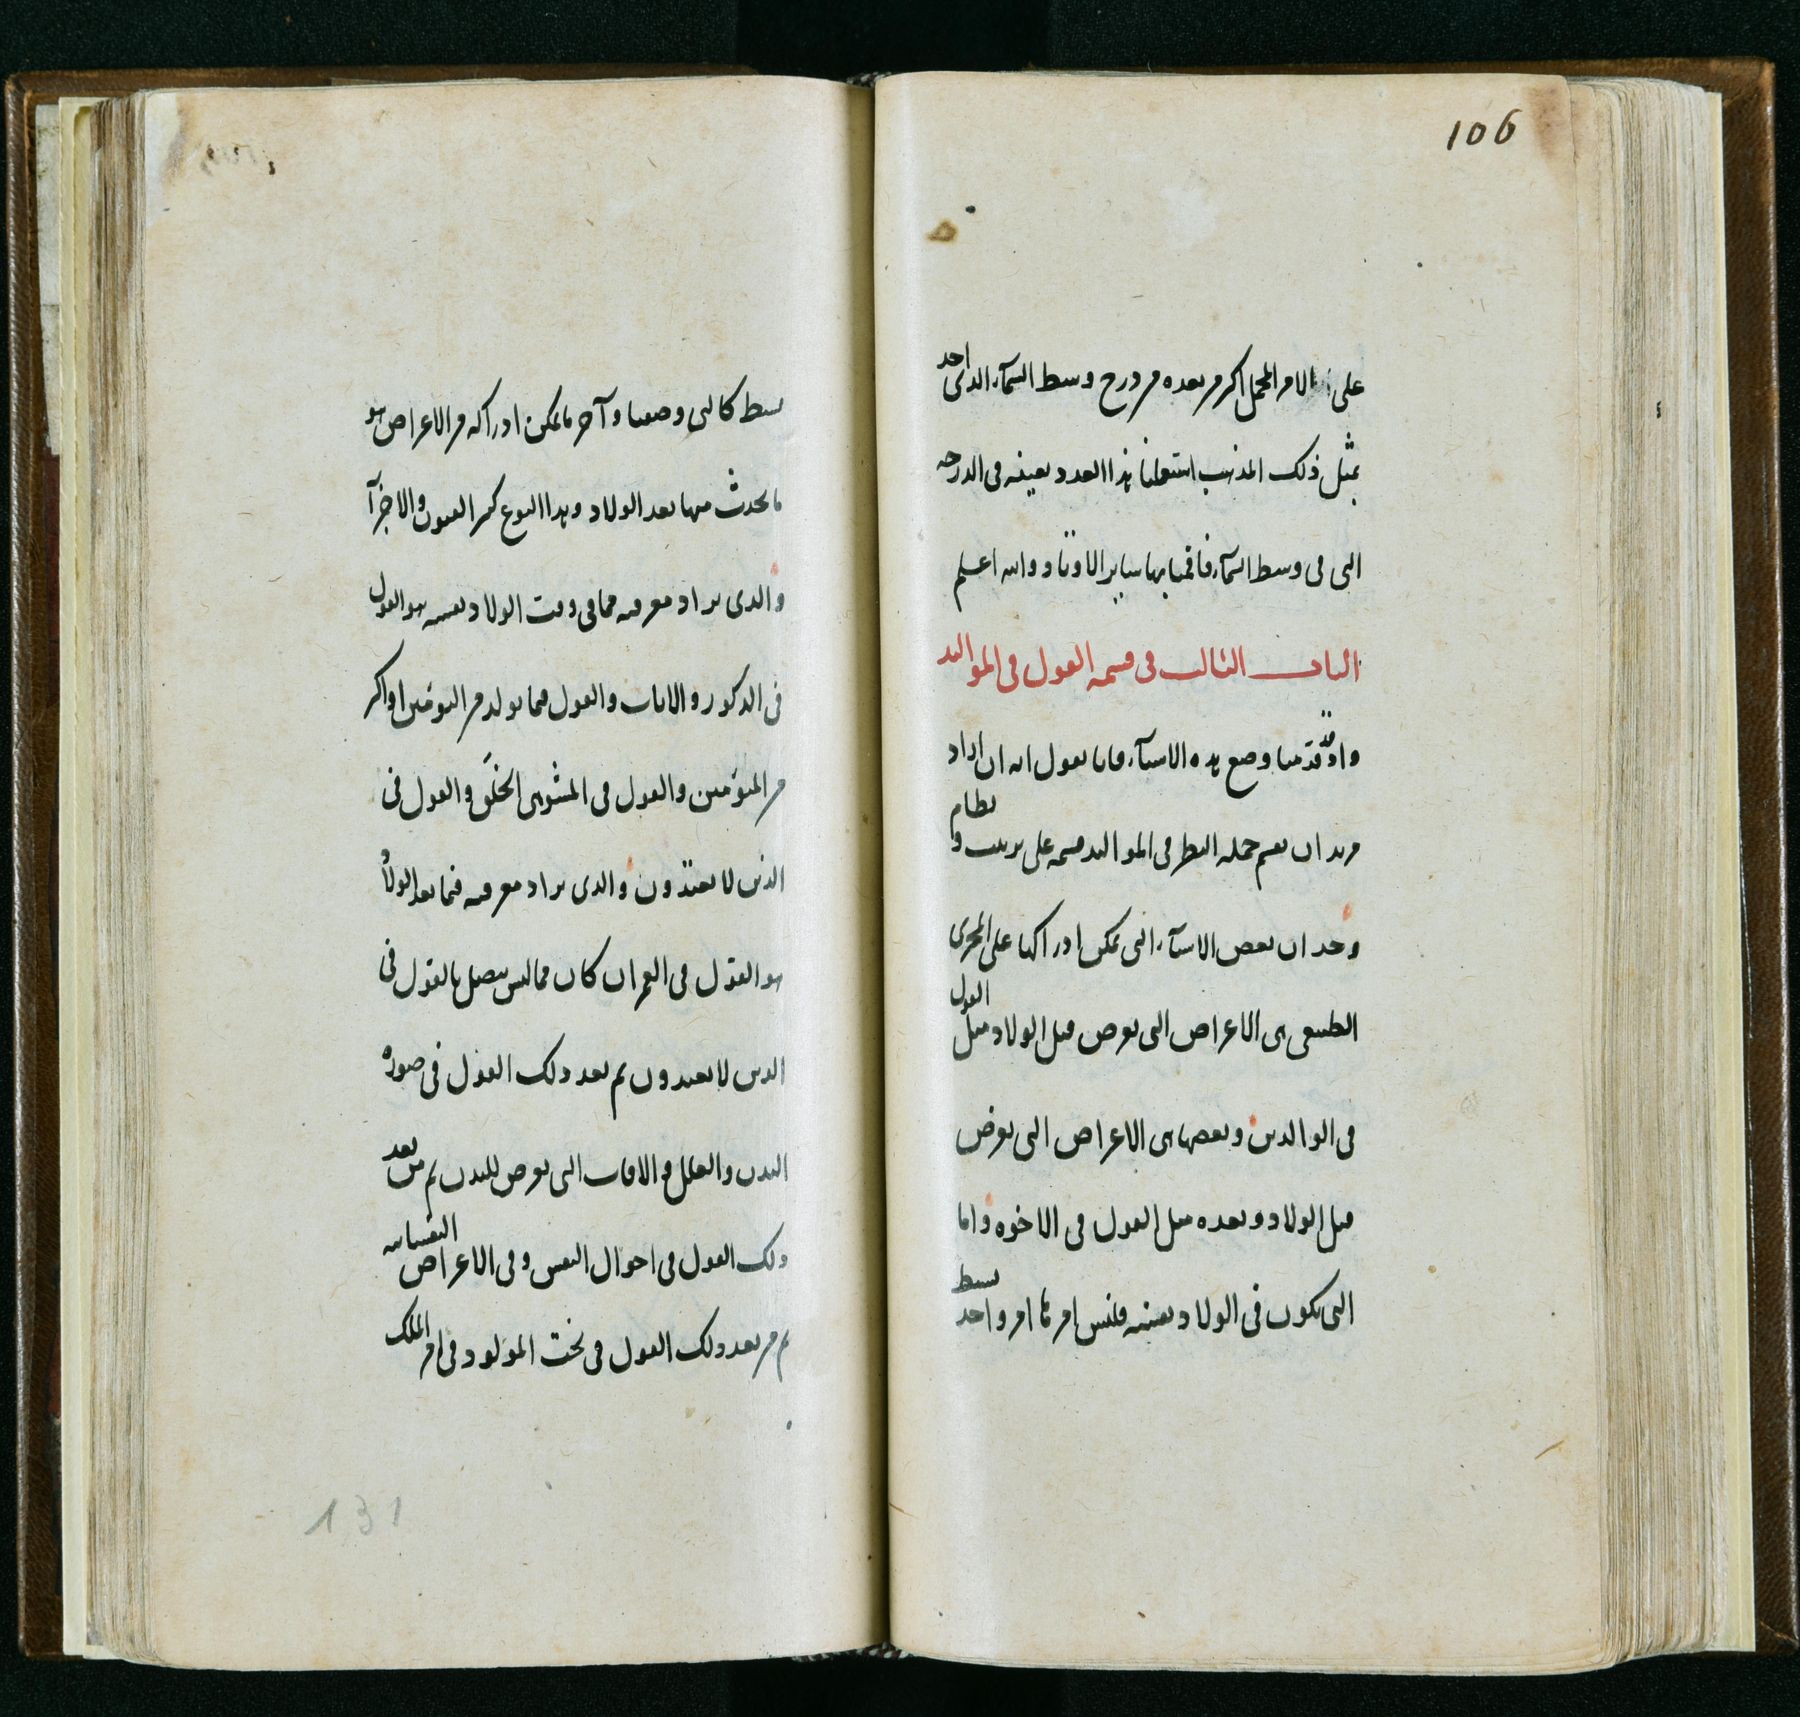 106
على الامر المحمل اكثر من بعده من درج وسط السمآء الذى احد
بمثل ذلك المذهب استعملنا هذا العدد بعينه فى الدرجه
التى فى وسط السمآء فاقمنا بها ساير الاوتاد والله اعلم
الباب الثالث فى قسمه القول فى المواليد
واذ قد قدمنا وضع هذه الاشيآء فانا نقول انه ان اراد
مريد ان يقسم جمله النظر فى المواليد قسمه على ترتيب ونظام
وجد ان بعض الاشيآء التى يمكن ادراكها على المجرى
الطبيعى هى الاعراض التى تعرض قبل الولاد مثل القول
فى الوالدين وبعضها هى الاعراض التى تعرض
قبل الولاد وبعده مثل القول فى الاخوه واما
التى تكون فى الولاد بعينه فليس امرها امر واحد بسيط
بسيط كالتى وصفنا وآخر ما يمكن ادراكه من الاعراض هو
ما يحدث منها بعد الولاد وهذا النوع كثير الفنون والاجزآ
والذى يراد معرفته مما فى وقت الولاد بعينه هو القول
فى الذكور والاناث والقول فيما يولد من التوءمين او اكثر
من التوءمين والقول فى المشوهى الخلق والقول فى
الذين لا يغتذون والذى يراد معرفته فيما بعد الولاد
هو القول فى العمر ان كان مما ليس يتصل بالقول فى
الذين لا يغتذون ثم بعد ذلك القول فى صوره
البدن والعلل والافات التى تعرض للبدن ثم من بعد
ذلك القول فى احوال النفس وفى الاعراض النفسانيه
ثم من بعد ذلك القول فى بخت المولود فى امر الملك
131